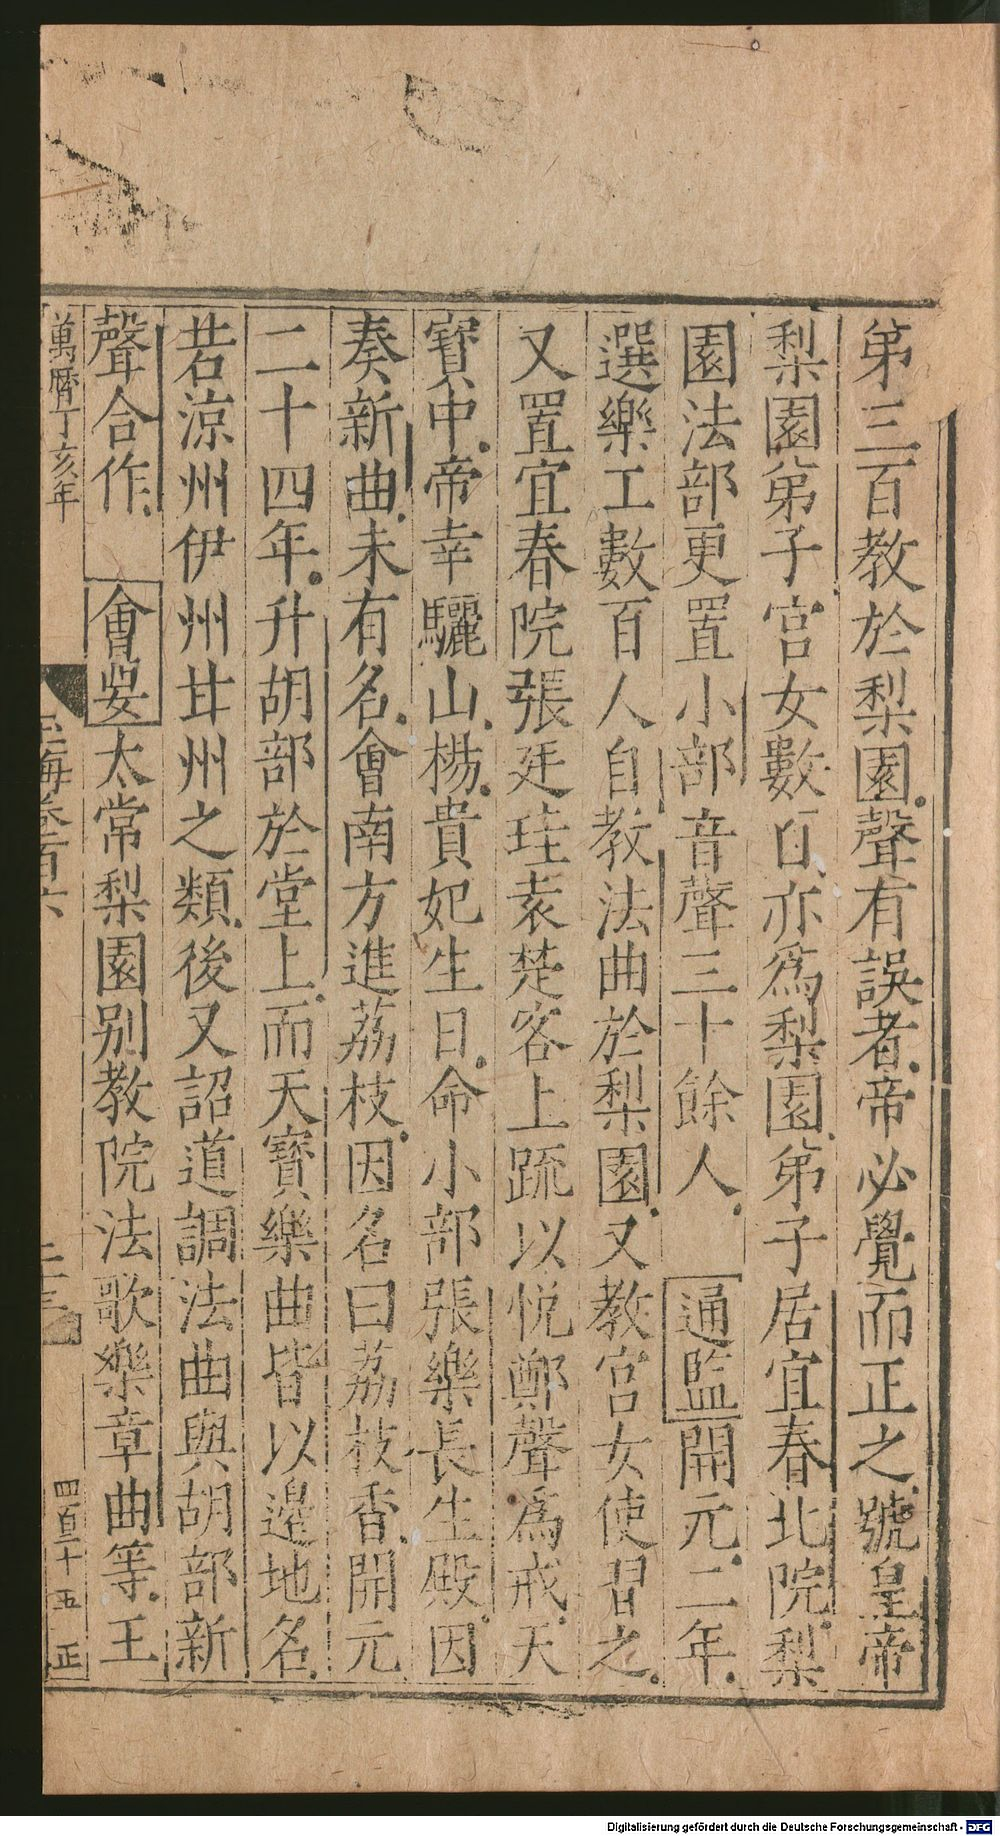 第三百教於梨園聲有誤者帝必覺而正之號皇帝
梨園弟子宮女數百亦爲梨園弟子居宜春北院梨
園法部更置小部音聲三十餘人通監開元二年
選樂工數百人自教法曲於梨園又教宮女使習之
又置宜春院張廷珪袁楚客上䟽以悅鄭聲爲戒天
寶中帝幸驪山楊貴妃生日命小部張樂長生殿因
奏新曲未有名會南方進荔枝因名曰荔枝香開元
二十四年升胡部於堂上而天寶樂曲皆以邉地名
若涼州伊州甘州之類後又詔道調法曲與胡部新
聲合作會要太常梨園别教院法歌樂章曲等王
萬曆丁亥年
玉海卷百六
二十三
四百三十五
正
Digitalisierung gefördert durch die Deutsche Forschungsgemeinschaft - DFG